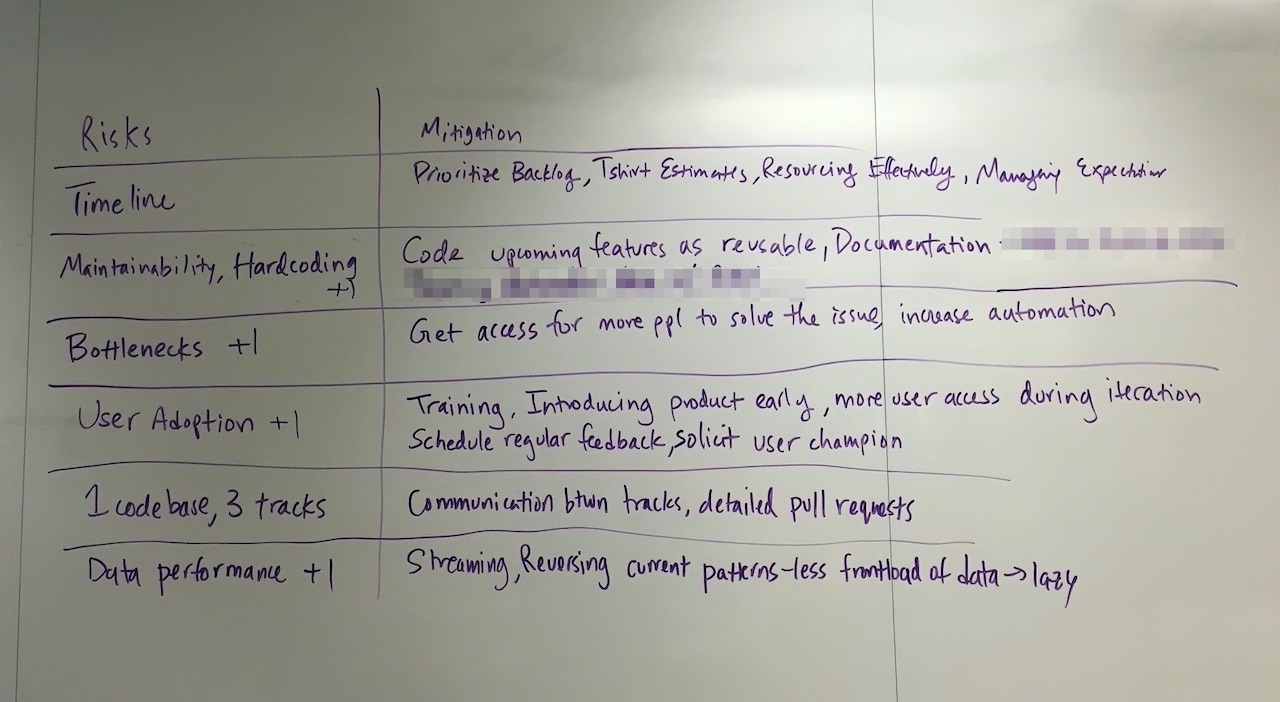 Risks
Mitigation
Timeline
Prioritize Backlog, Tshirt Estimates, Resourcing Effectively, Managing Expectation
Maintainability, Hardcoding
+1
Code upcoming features as reusable, Documentation
Bottlenecks +1
Get access for more ppl to solve the issue, increase automation
User Adoption +1
Training, Introducing product early, more user access during iteration
Schedule regular feedback, solicit user champion
1 codebase, 3 tracks
Communication btwn tracks, detailed pull requests
Data performance +1
Streaming, Reversing current patterns-less frontload of data → lazy